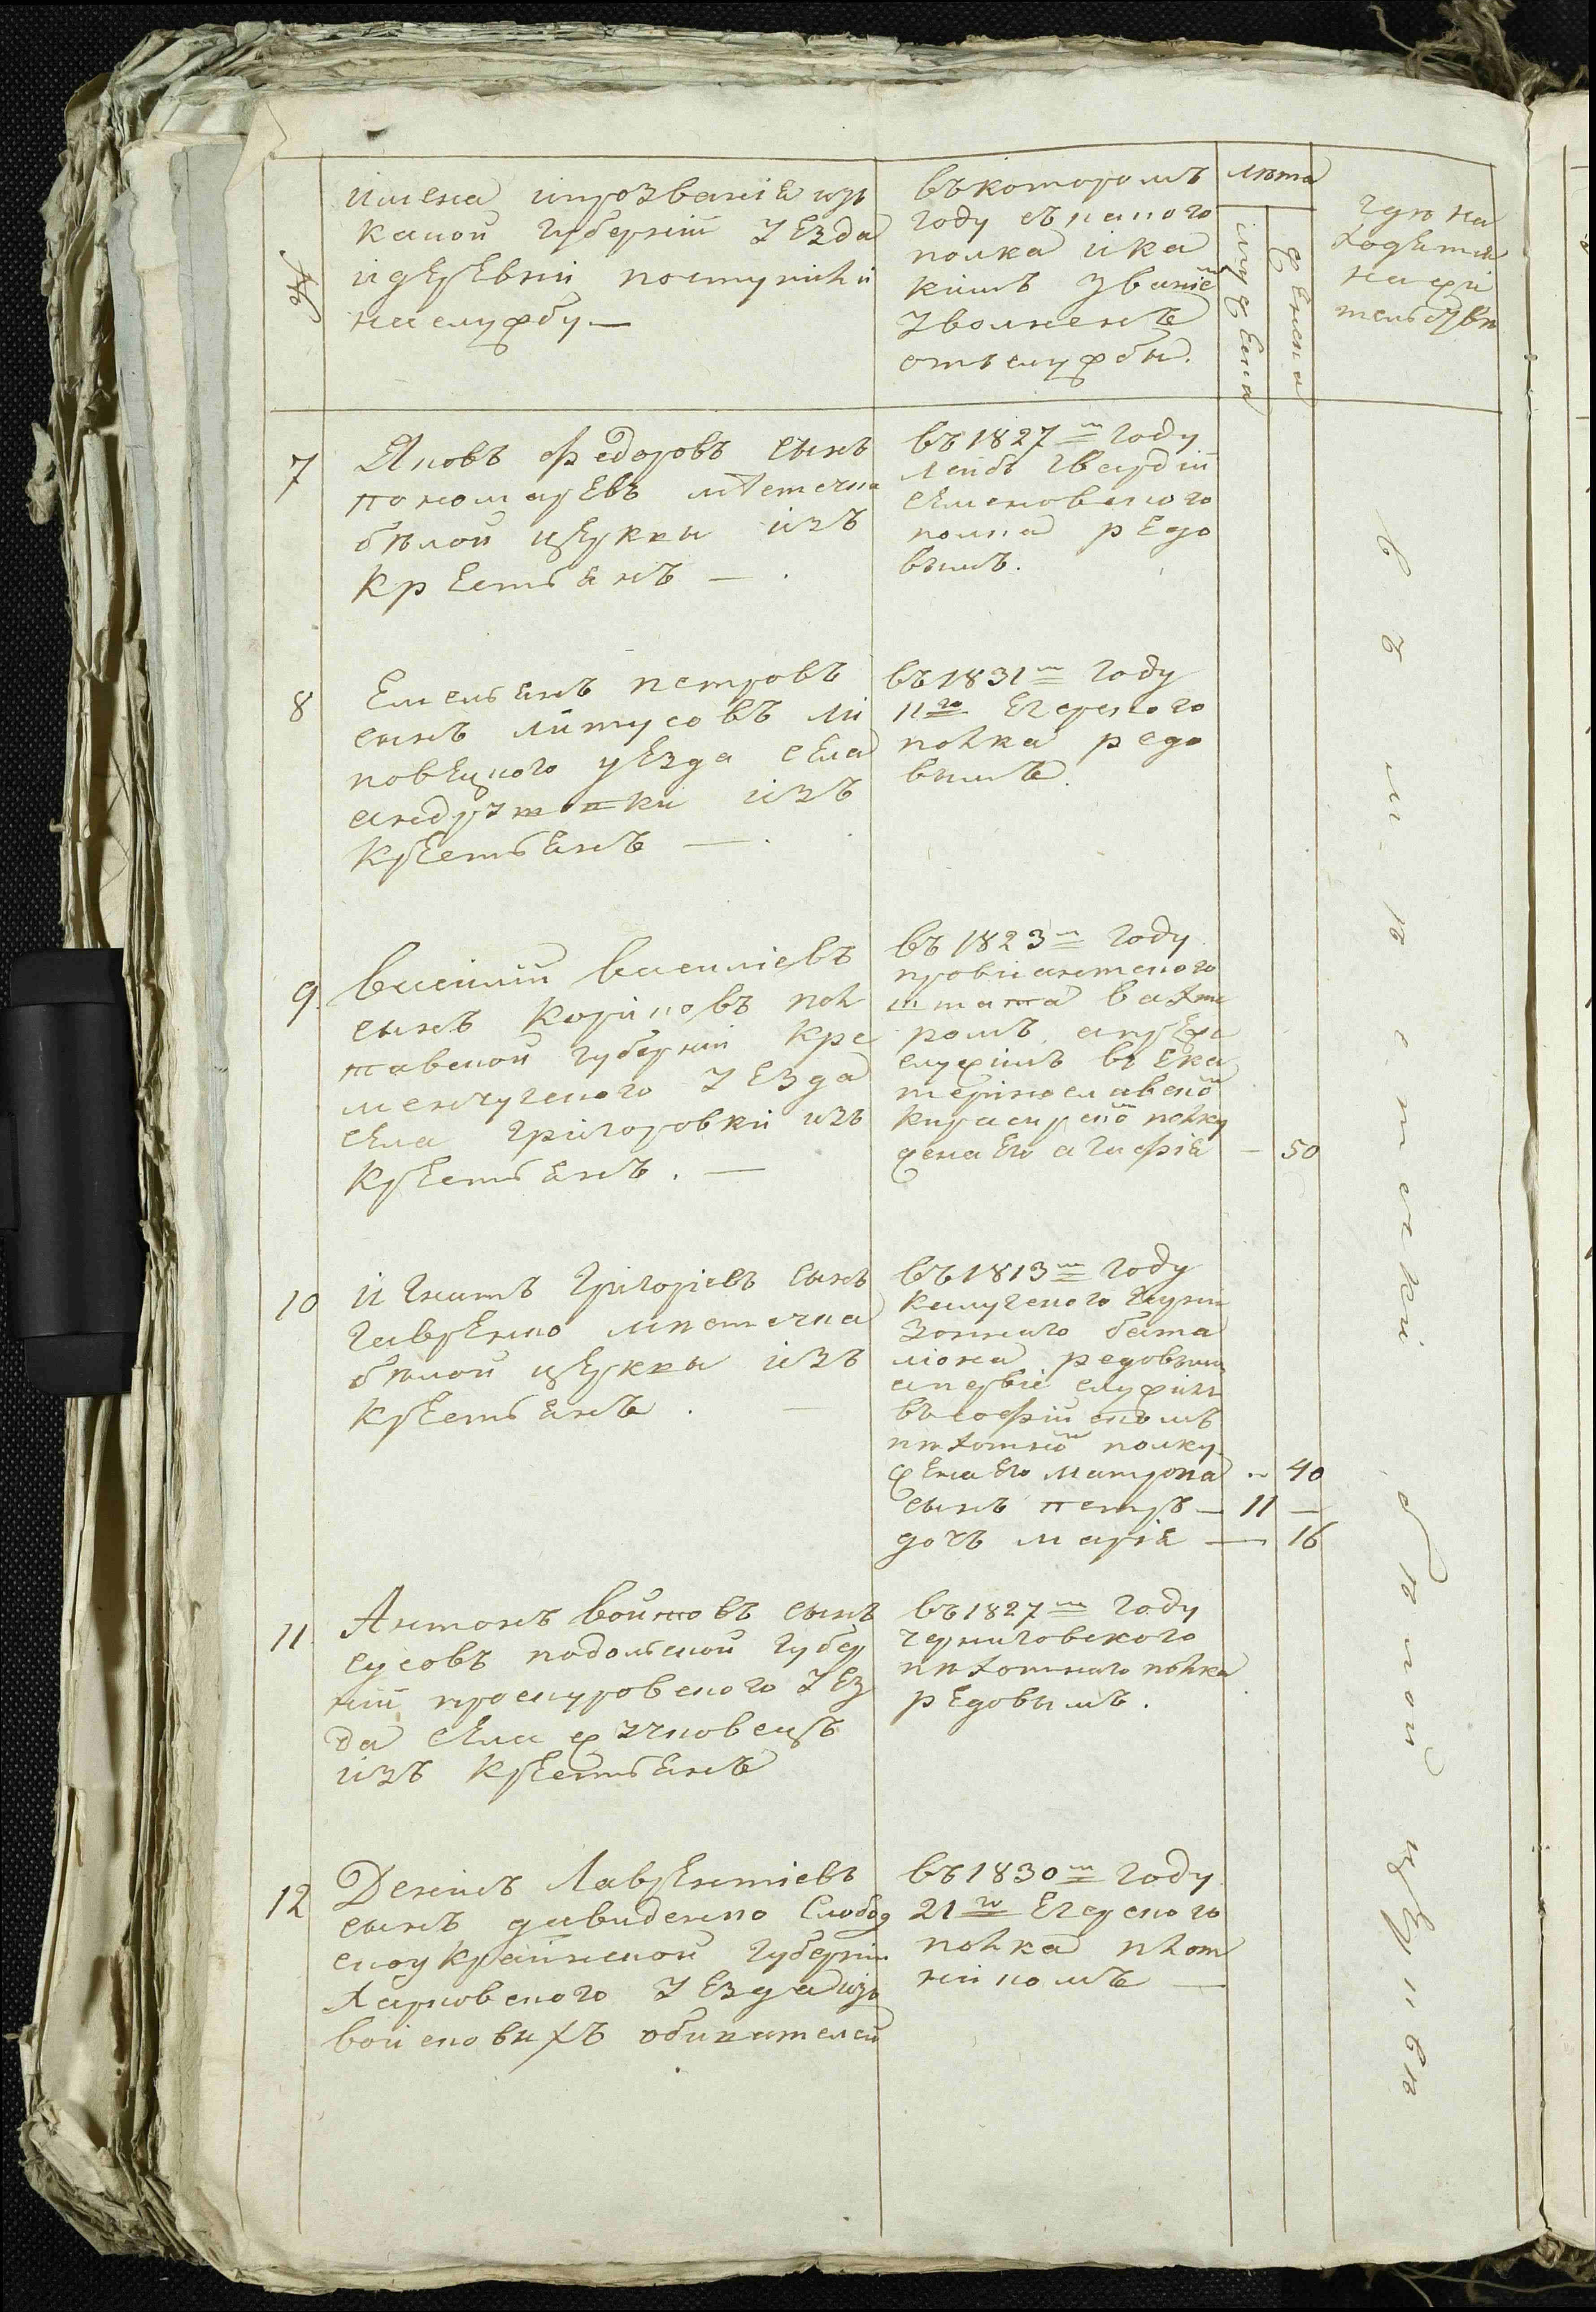 №
имена ипрозваніе изъ
какой губерніи уезда
идеревни поступилъ
наслужбу. —
въкоторомъ
году съкакого
полка ика
кимъ званіе
уволненъ
отъслужбы.
лѣта
мужеска
женска
гдѣ на
ходится
нажи
тельствѣ
7
Яковъ федоровъ сынъ
пономаревъ мѣстечка
бѣлой церквы изъ
крестьянъ — .
въ 1827 м году
лейбъ гвардіи
семеновского
полка редо
вымъ.
8
Емельянъ петровъ
сынъ литусовъ ли
повецкого уезда села
андрушовки изъ
крестьянъ — .
въ 1831 м году
11 го Егерского
полка редо
вымъ.
9.
василій василіевъ
сынъ кориковъ пол
тавской губерніи кре
менчугского уезда
села григоровки изъ
крестьянъ . —
въ 1823 м году
провіантского
штата вахте
ромъ, апреже
служилъ въ Ека
теринославско
кирасирско полку
жена Его агафія — 50
10
игнатъ григоріевъ сынъ
гавренко мѣстечка
бѣлой церквы изъ
крестьянъ . —
въ 1813 м году
калужского гарни
зонного бата
ліона редовымъ
апервіе служилъ
въсофійскомъ
пѣхотно полку
жена Его матрона 40
сынъ петръ — 11 —
дочъ марія — 16
11.
Антонъ войтовъ сынъ
сусовъ подольской губер
ніи проскуровского уез
да села жучковецъ
изъ крестьянъ
въ 1827 м году
черниговского
пѣхотного полка
редовымъ.
12
Денисъ Лаврентіевъ
сынъ давиденко слобод
скоукраинской губерніи
харковского уезда изъ
войсковихъ обивателей
въ 1830 м году
21 го Егерского
полка плот
никомъ —
въ мѣстечкѣ бѣлой церквѣ